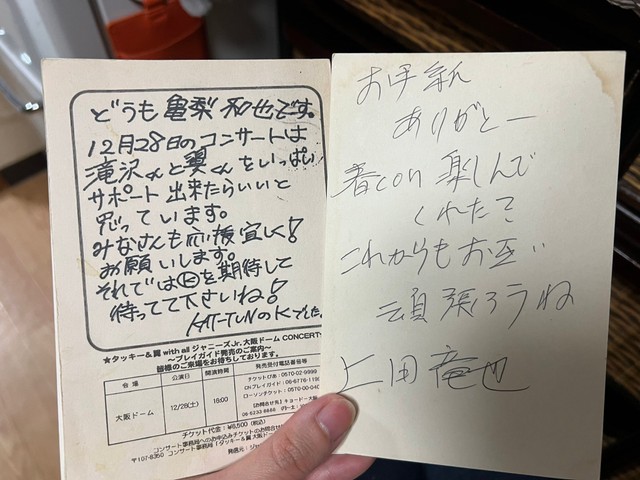 どうも亀梨和也です。
12月28日のコンサートは
滝沢くんと翼くんをいっぱい
サポート出来たらいいと
思っています。
みなさんも応援宜しく!
お願いします。
それでは㊤を期待して
待ってて下さいね!
KAT-TUNのKでした。
★タッキー&翼 with all ジャニーズJr. 大阪ドーム CONCERT
~プレイガイド発売のご案内~
皆様のご来場をお待ちしております。
会場 公演日 開演時間 発売受付電話番号等
大阪ドーム 12/28(土) 18:00
チケットぴあ:0570-02-9999
CNプレイガイド:06-6776-119
ローソンチケット:0570-00-04
06-6233-8888
チケット代金:¥6,500(税込)
コンサート事務局へのお申込みチケットのお問合せ
〒107-8350 コンサート事務局「タッキー&翼大阪ドーム
発信元:ジャ
お手紙
ありがとー
春con 楽しんで
くれたそ
これからもお互い
頑張ろうね
上田竜也